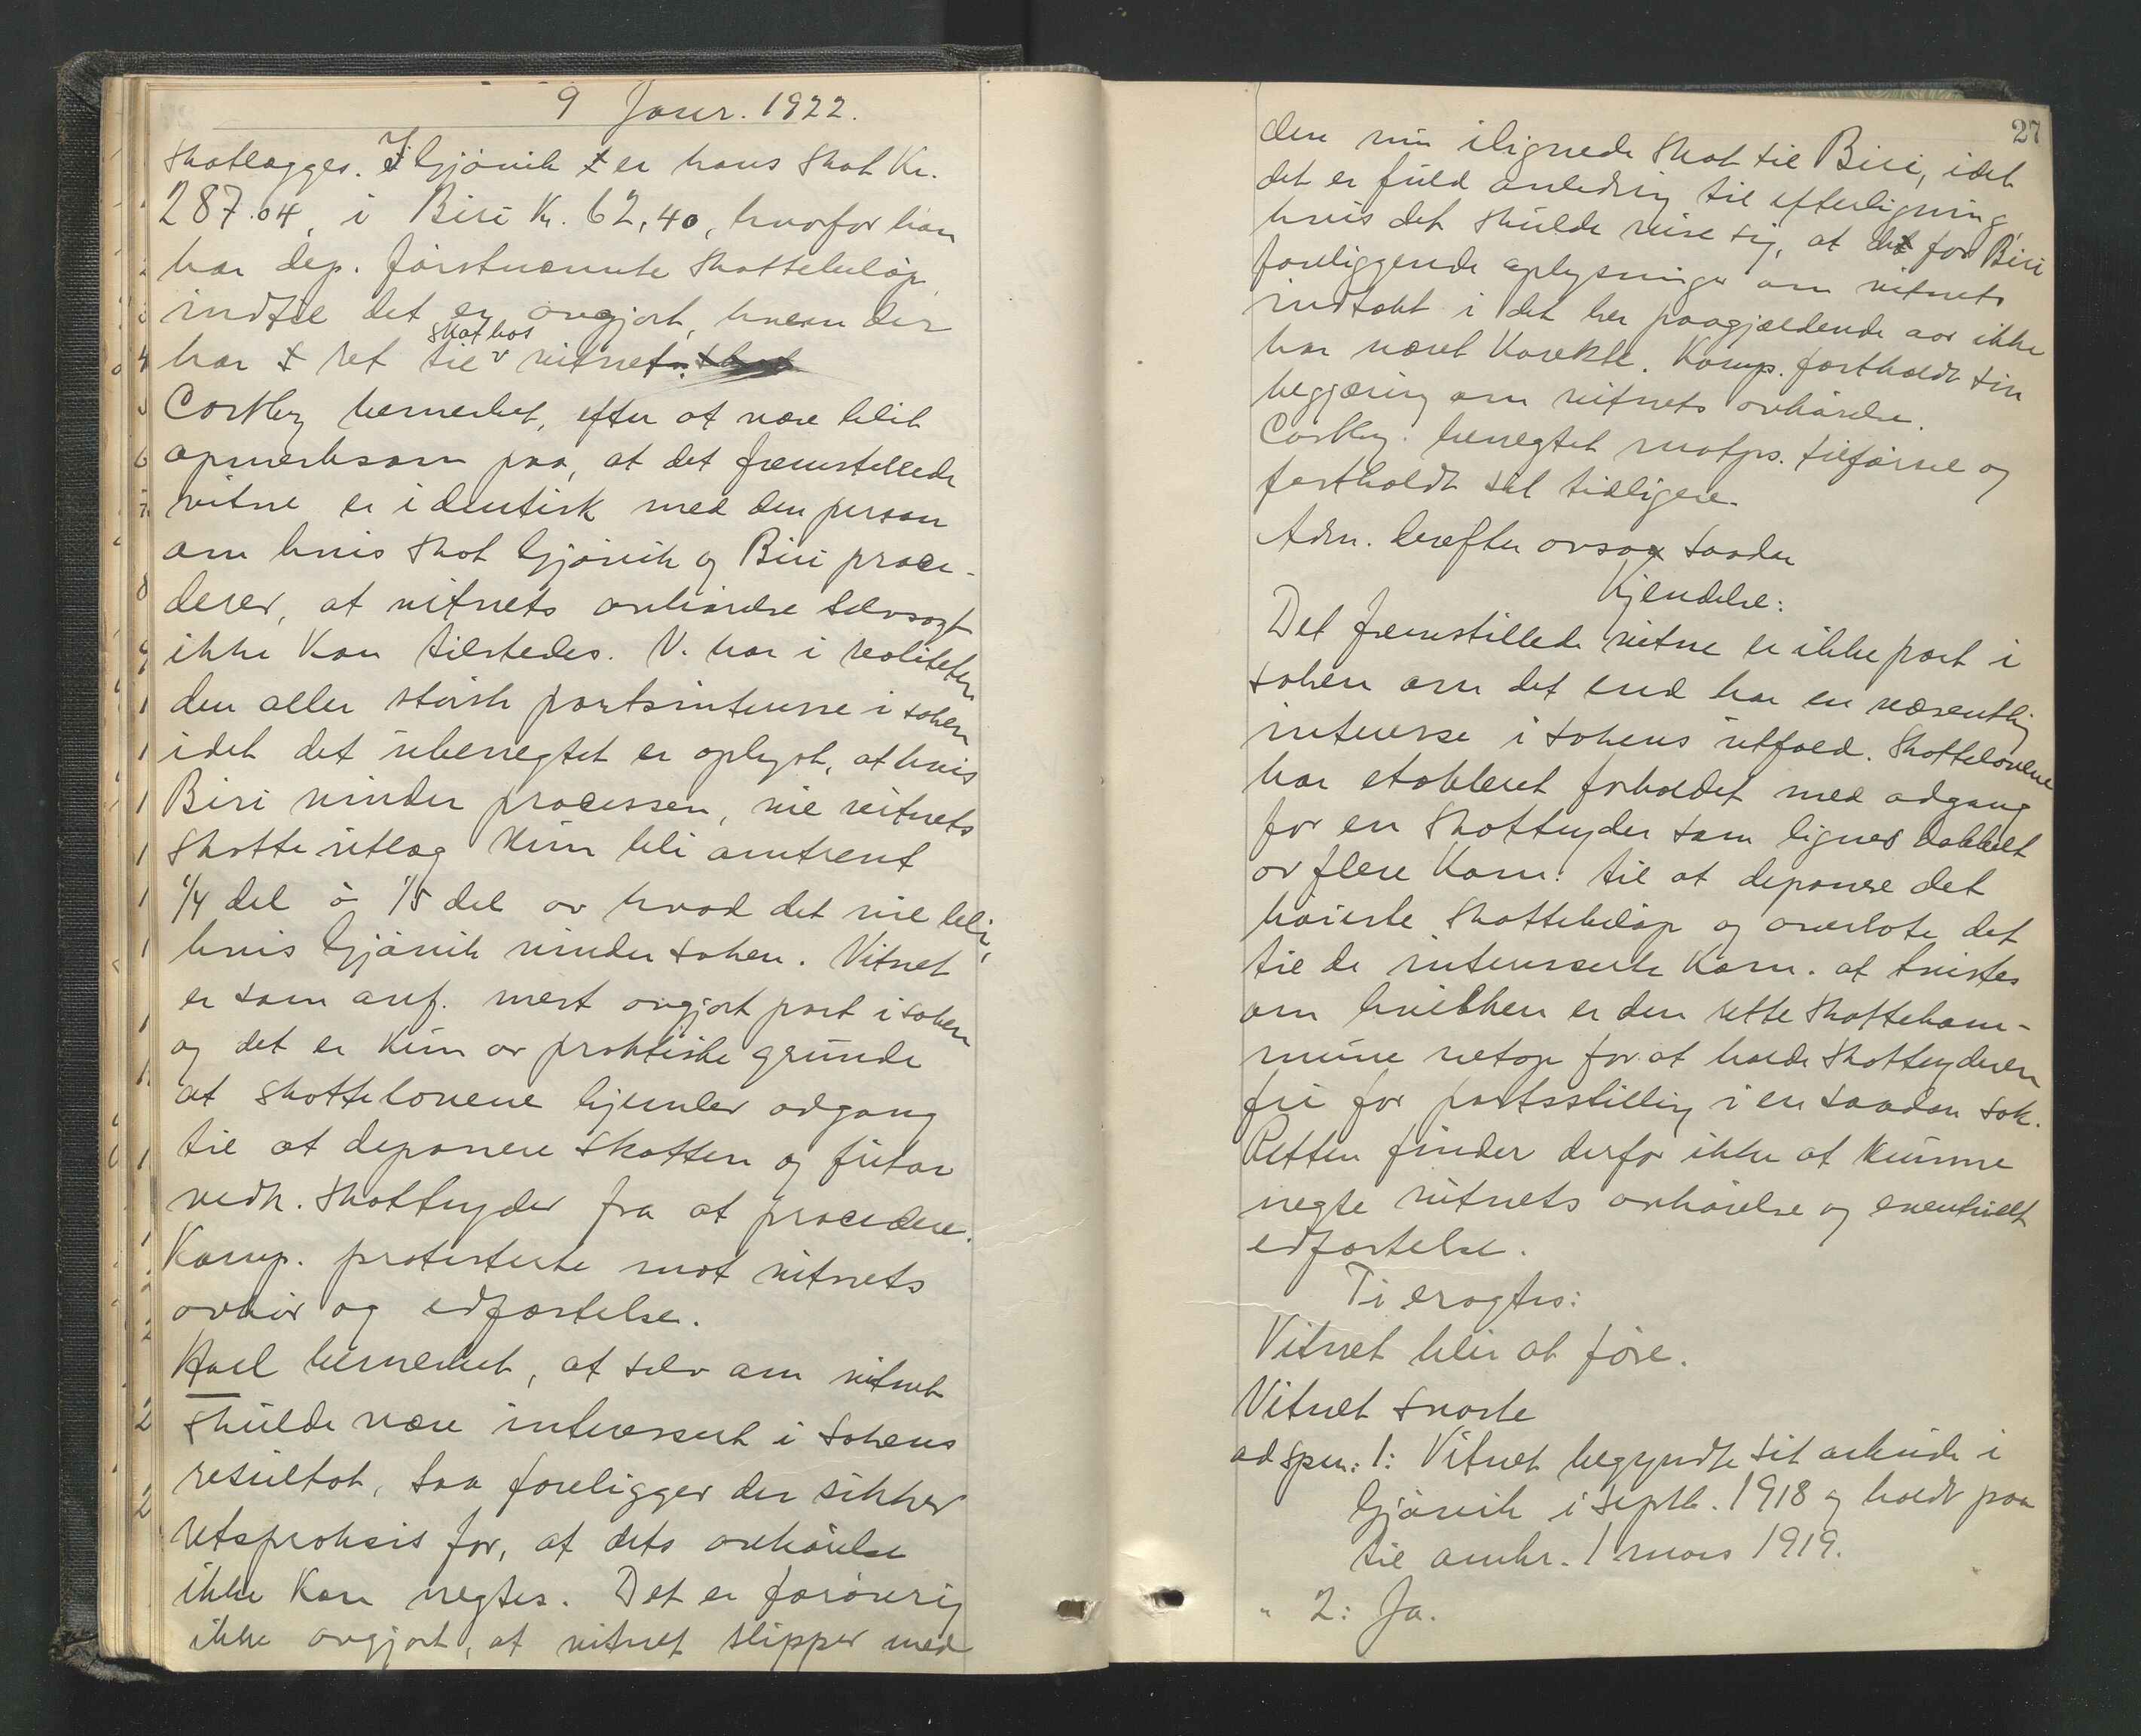 9 Janr. 1922.
skatlægges. I Gjøvik er hans skat Kr.
287.04, i Biri Kr. 62,40, hvorfor han
har dep. førstnævnte skattebeløp,
indtil det er avgjort, hvem der
har ret til skat hos vitnet.
Castby bemerket, efter at være blit
opmerksom paa, at det fremstillede
vitne er identisk med den person
om hvis skat Gjøvik og Biri proce-
derer, at vitnets avhørelse selvsagt
ikke kan tilstedes. V. har i realiteten
den aller største partsinteresse i saken
idet det ubenegtet er oplyst, at hvis
Biri vinder processen, vil vitnets
skatteutlæg kun bli omtrent
1/4 del à 1/5 del av hvad det vil bli,
hvis Gjøvik vinder saken. Vitnet
er som anf. mest avgjort part i saken
og det er kun av praktiske grunde
at skattelovene hjemler adgang
til at deponere skatten og fritar
vedk. skatteyder fra at procedere.
Komp. protesterte mot vitnets
avhør og edfæstelse.
Hoel bemerket, at selv om vitnet
skulde være interessert i sakens
resultat, saa foreligger der sikker
retspraksis for, at dets avhørelse
ikke kan negtes. Det er forøvrig
ikke avgjort, at vitnet slipper med
27
den nu ilignede skat til Biri, idet
det er fuld anledning til efterligning,
hvis det skulde vise sig, at de for Biri
foreliggende oplysninger om vitnets
indtækt i det her paagjældende aar ikke
har været korekte. Komp. fastholdt sin
begjæring om vitnets avhørelse.
Castby. benegtet motps. tilførsel og
fastholdt sit tidligere.
Adm. derefter avsa saadan
Kjendelse:
Det fremstillede vitne er ikke part i
saken om det end har en væsentlig
interesse i sakens utfald. Skattelovene
har etableret forholdet med adgang
for en skatteyder som lignes dobbelt
av flere kom: til at deponere det
høieste skattebeløp og overlate det
til de interesserte kom. at tvistes
om hvilken er den rette skattekom-
mune netop for at holde skatteyderen
fri for partsstilling i en saadan sak.
Retten finder derfor ikke at kunne
negte vitnets avhørelse og eventuelt
edfæstelse.
Ti eragtes:
Vitnet blir at føre.
Vitnet svarte
ad spm: 1: Vitnet begyndte sit arbeide i
Gjøvik i septb. 1918 og holdt paa
til omkr. 1 mars 1919.
" 2: Ja.